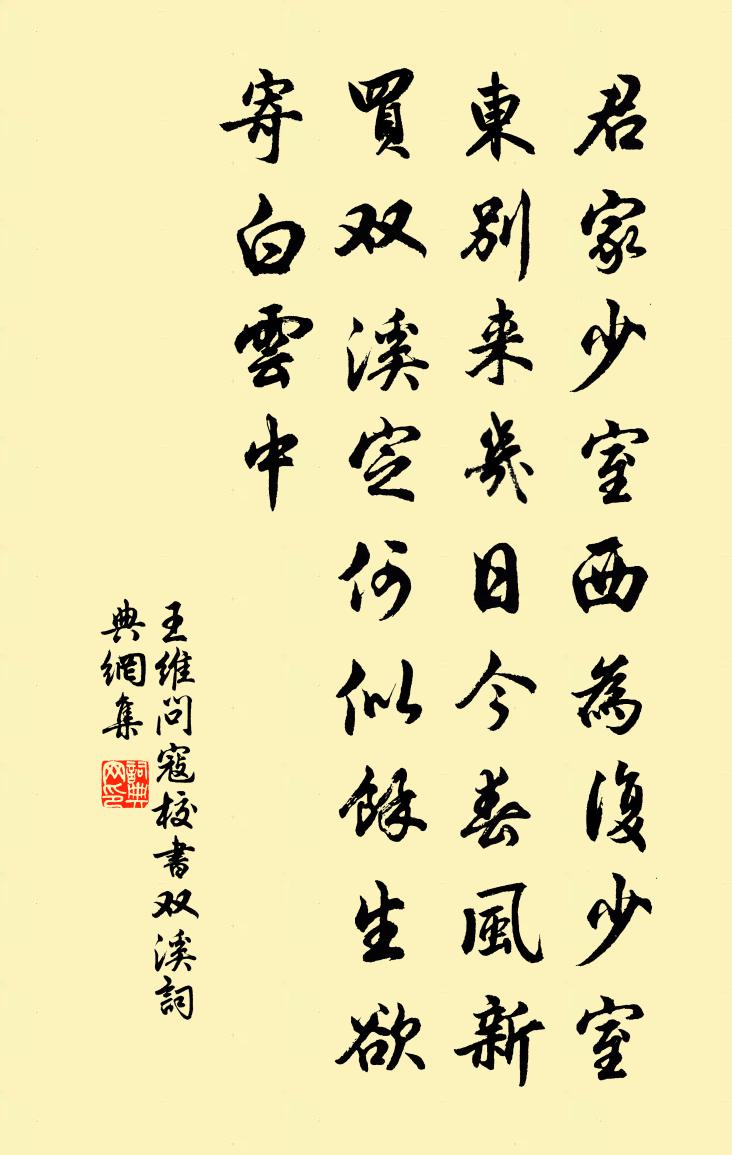 君家少室西為復少室
東別来幾日今春風新
買双溪定何似餘生欲
寄白雲中
王維問寇校書双溪詞
典網集
詞典网印